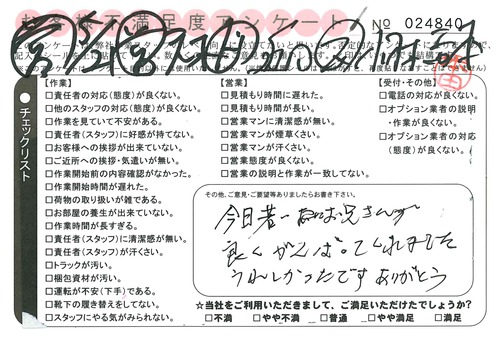 お客様不満足度アンケート
No 024840
チェックリスト
【作業】
□責任者の対応(態度)が良くない。
□他のスタッフの対応(態度)が良くない。
□作業を見ていて不安がある。
□責任者(スタッフ)に好感が持てない。
□お客様への挨拶が出来ていない。
□ご近所への挨拶・気遣いが無い。
□作業開始前の内容確認がなかった。
□作業開始時間が遅れた。
□荷物の取り扱いが雑である。
□お部屋の養生が出来ていない。
□作業時間が長すぎる。
□責任者(スタッフ)に清潔感が無い。
□責任者(スタッフ)が汗くさい。
□トラックが汚い。
□梱包資材が汚い。
□運転が不安(下手)である。
□靴下の履き替えをしてない。
□スタッフにやる気がみられない。
【営業】
□見積もり時間に遅れた。
□見積もり時間が長い。
□営業マンに清潔感が無い。
□営業マンが煙草くさい。
□営業マンが汗くさい。
□営業態度が良くない。
□営業の説明と作業が一致してない。
【受付・その他】
□電話の対応が良くない。
□オプション業者の説明
・作業が良くない。
□オプション業者の対応
(態度)が良くない。
その他、ご意見・ご要望等ありましたらお書き下さい。
今日若いお兄さんが
良くがんばってくれました
うれしかったです ありがとう
☆当社をご利用いただきまして、ご満足いただけたでしょうか?
□不満 □やや不満 □普通 □やや満足 □満足